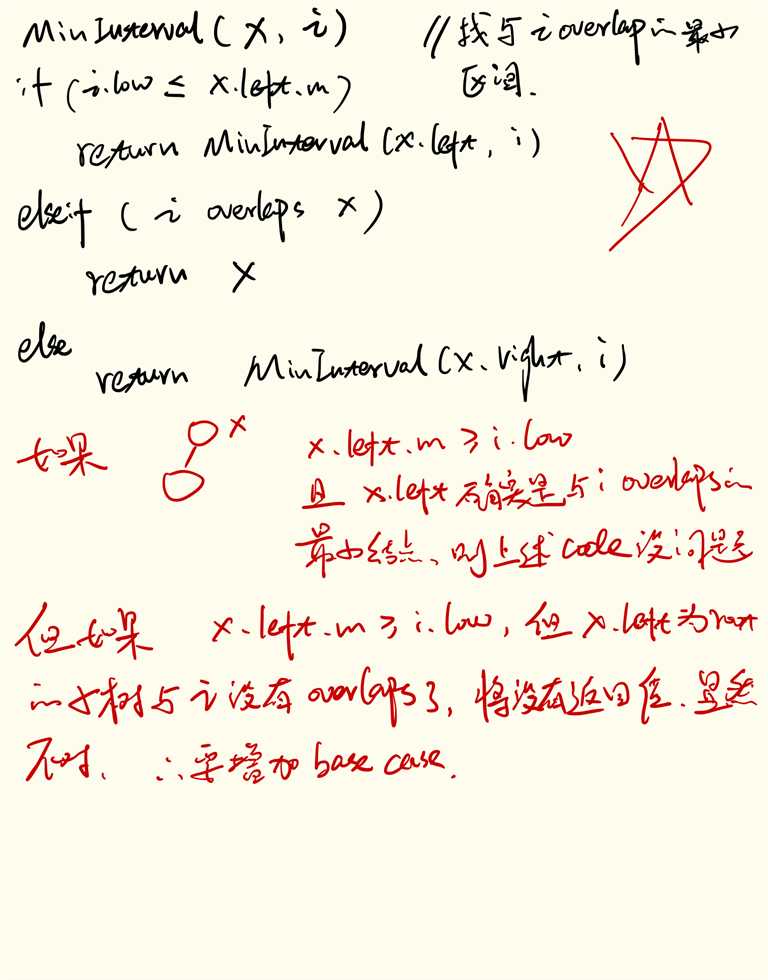 MinInterval(x, i) // 找与 i overlap的最小
if (i.low ≤ x.left.m) 区间.
return MinInterval(x.left, i)
elseif ( i overlaps x )
return x
else
return MinInterval(x.right, i)
如果 x x.left.m ≥ i.low
且 x.left 确实是与 i overlaps的
最小结点、则上述code没问题
但如果 x.left.m ≥ i.low, 但 x.left为root
的子树与 i 没有 overlaps了, 将没有返回值. 显然
不对. ∴要增加 base case.